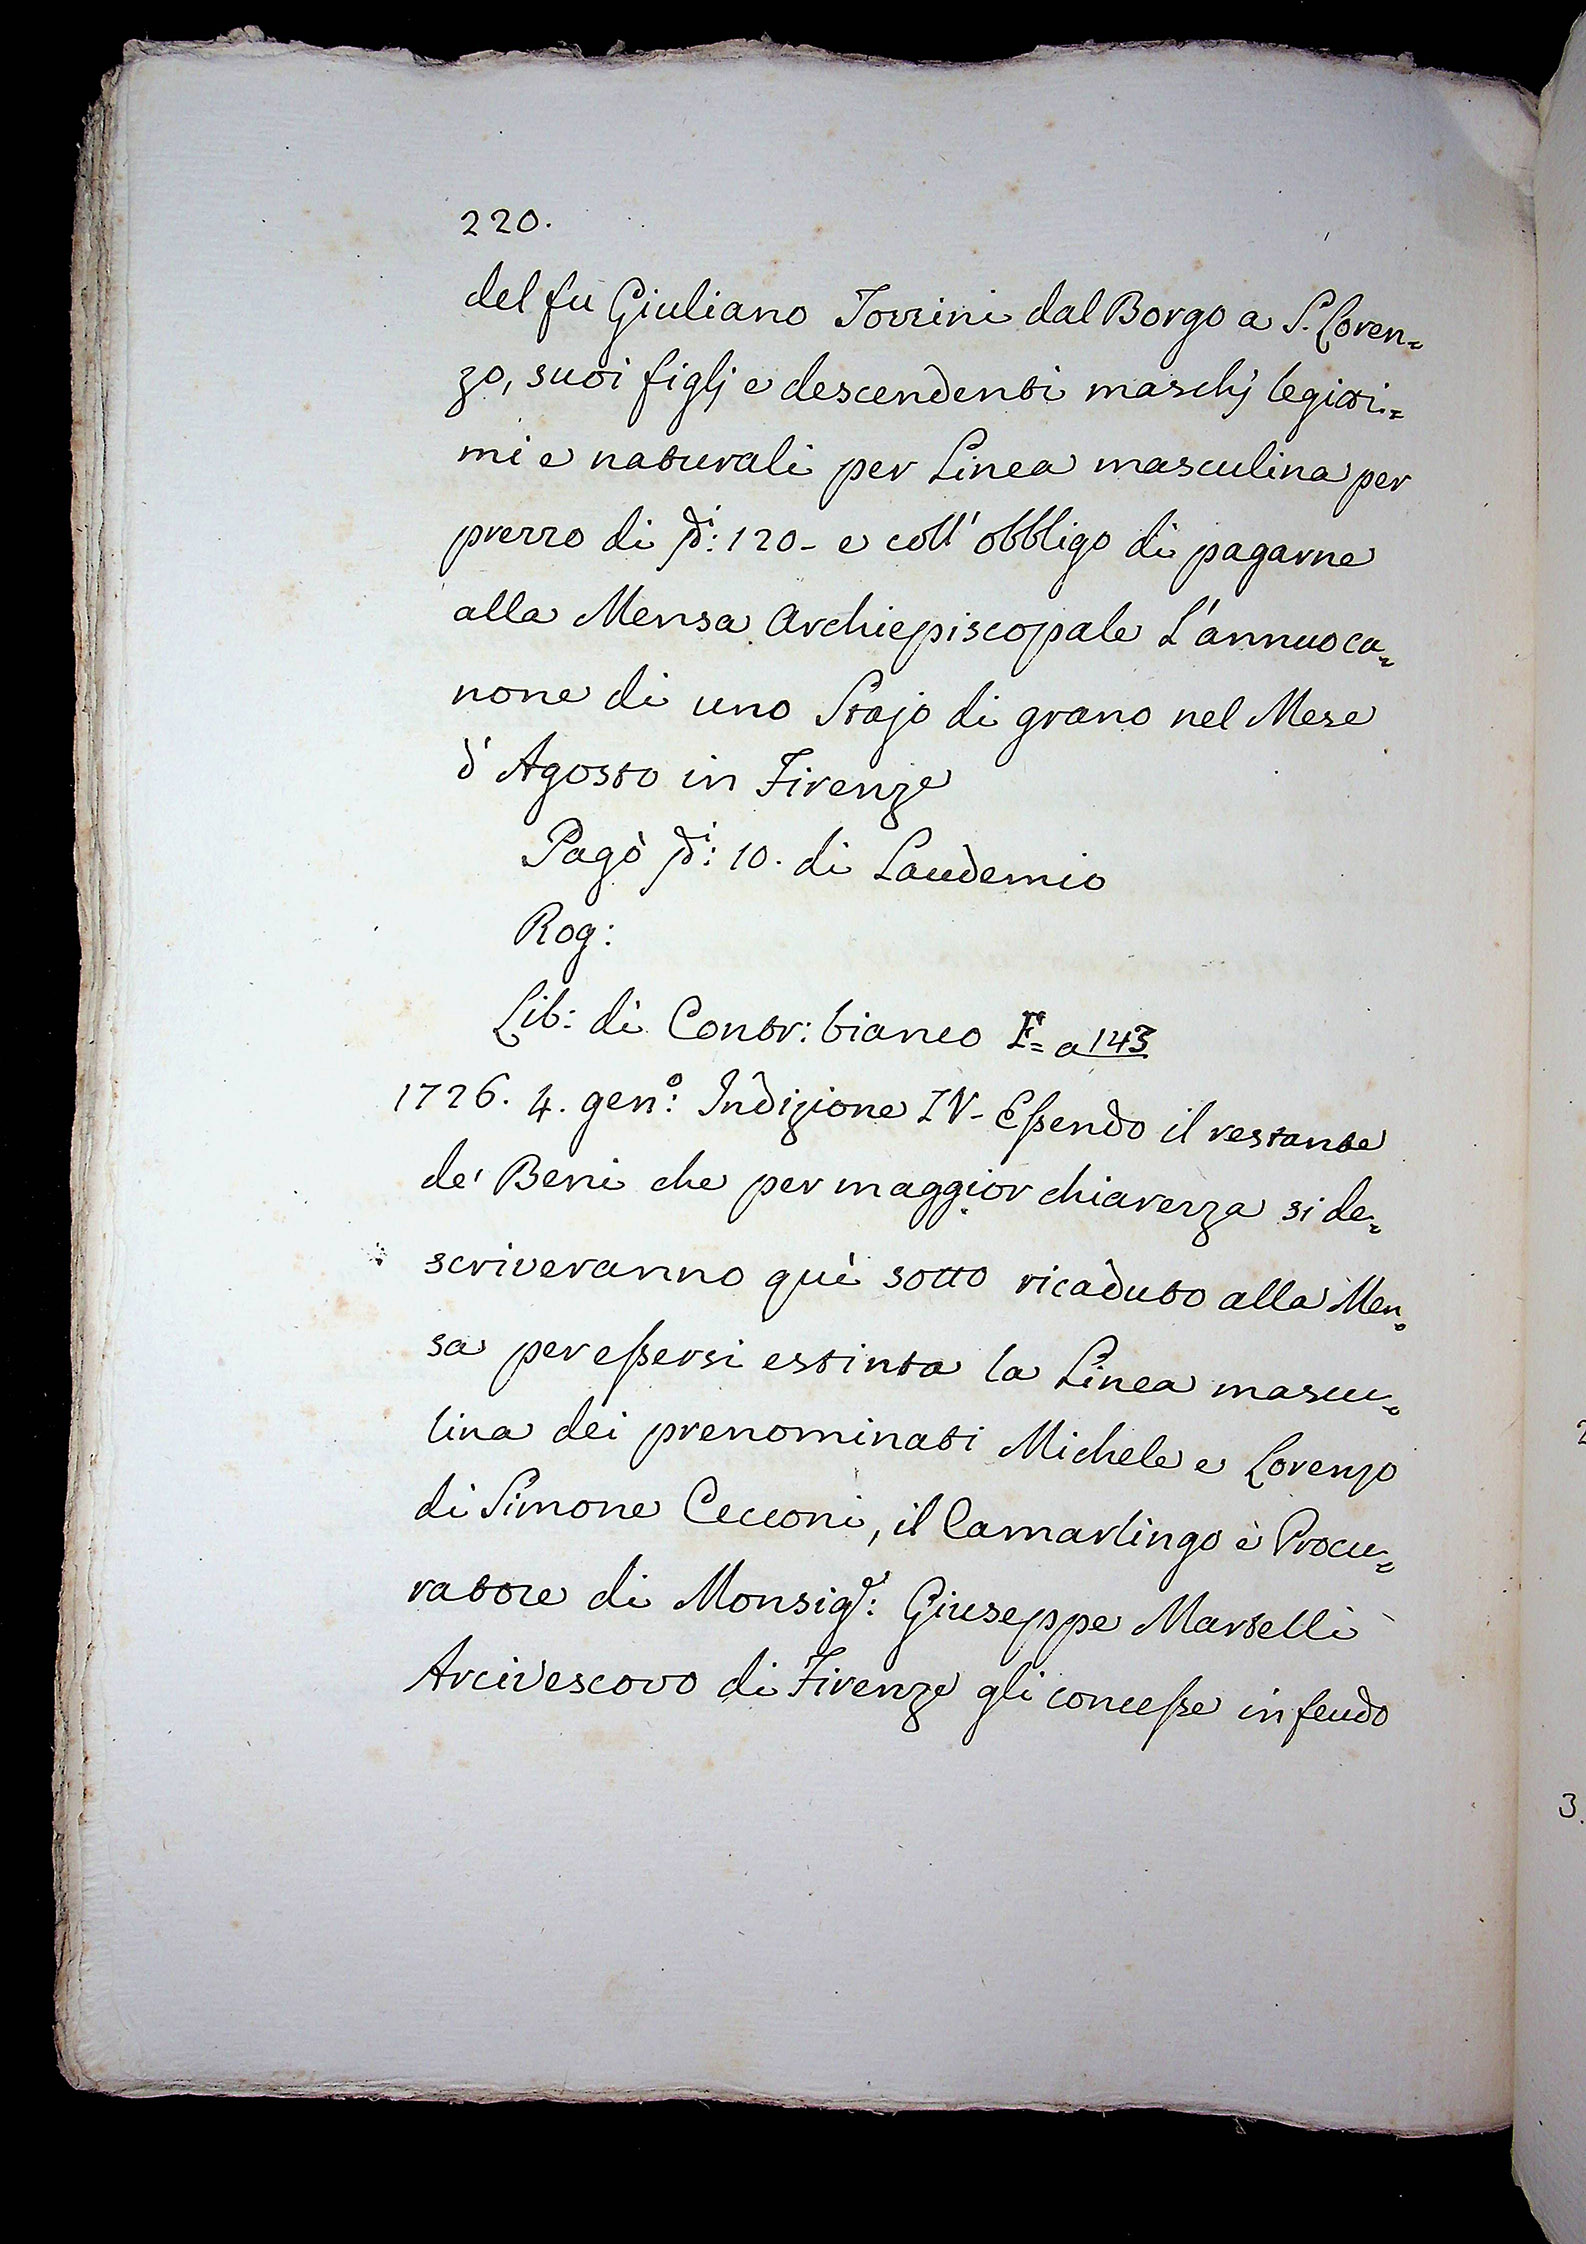 220.
del fu Giuliano Torrini dal Borgo a S. Loren=
zo, suoi figlj e descendenti maschj legitti=
mi e naturali per Linea masculina per
prezzo di di: 120- e coll' obbligo di pagarne
alla Mensa Archiepiscopale L'annuo ca=
none di uno Stajo di grano nel Mese
d'Agosto in Firenze
Pagò di: 10. di Laudemio
Rog:
Lib: di Contr: bianco F= a 143
1726. 4. gen:o Indizione IV- Essendo il restante
de' Beni che per maggior chiarezza si de=
scriveranno quì sotto ricaduto alla Men=
sa per essersi estinta la Linea mascu=
lina dei prenominati Michele e Lorenzo
di Simone Cecconi, il Camarlingo e Procu=
ratore di Monsigr: Giuseppe Martelli
Arcivescovo di Firenze gli concesse in feudo
3.